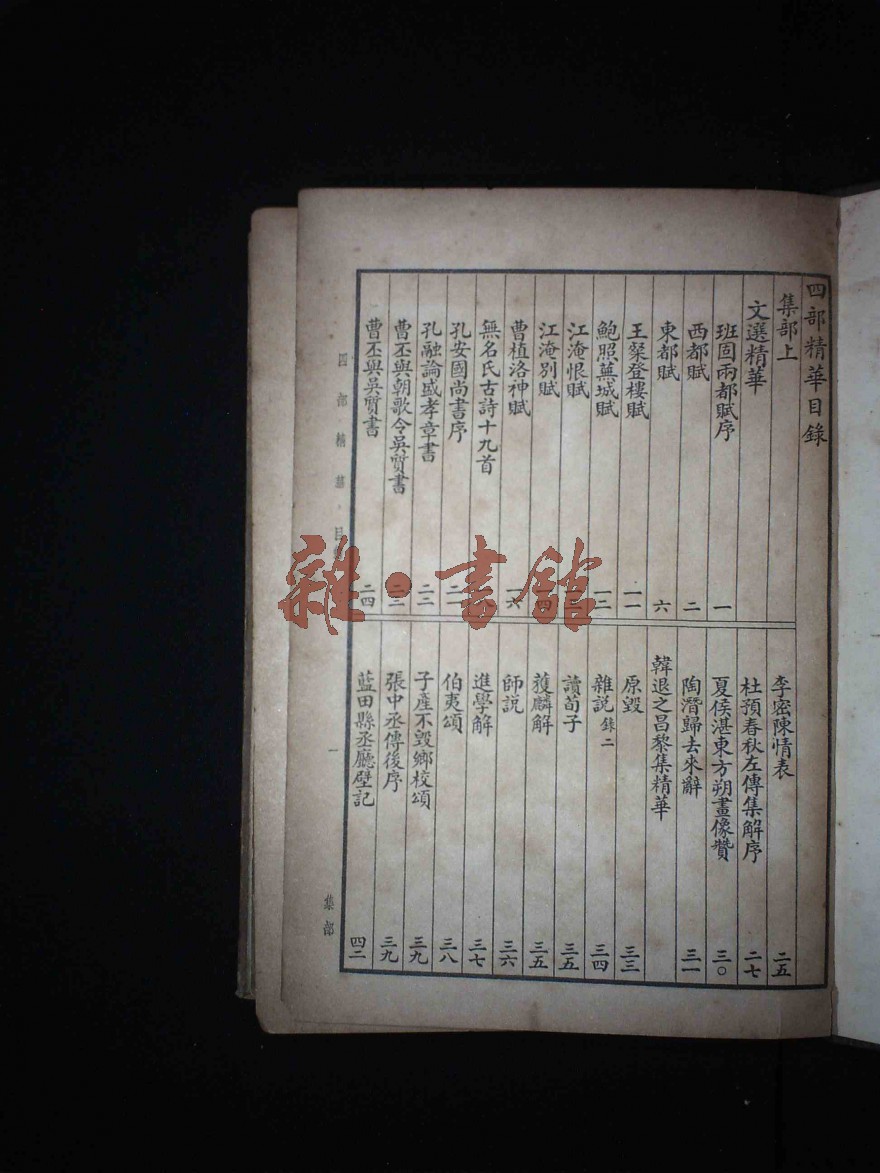 四部精華目錄
集部上
文選精華
班固兩都賦序 一
西都賦 二
東都賦 六
王粲登樓賦 一一
鮑照蕪城賦 一二
江淹恨賦
江淹別賦
曹植洛神賦 一六
無名氏古詩十九首
孔安國尚書序
孔融論盛孝章書 二二
曹丕與朝歌令吳質書 二三
曹丕與吳質書 二四
李密陳情表 二五
杜預春秋左傳集解序 二七
夏侯湛東方朔畫像贊 三〇
陶潛歸去來辭 三一
韓退之昌黎集精華
原毀 三三
雜說 錄二 三四
讀荀子 三五
獲麟解 三五
師說 三六
進學解 三七
伯夷頌 三八
子產不毀鄉校頌 三九
張中丞傳後序 三九
藍田縣丞廳壁記 四二
四部精華·目
一
集部
雜·書館